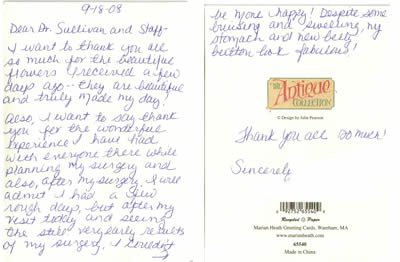 9-18-08
Dear Dr. Sullivan and Staff-
I want to thank you all
so much for the beautiful
flowers I received a few
days ago -- they are beautiful
and truly made my day!
Also, I want to say thank
you for the wonderful
experience I have had
with everyone there while
planning my surgery and
also, after my surgery. I will
admit I had a few
rough days, but after my
visit today and seeing
the still very early results
of my surgery, I couldn't
be more happy! Despite some
bruising and swelling, my
stomach and new belly
button look fabulous!
THE
Antique
COLLECTION
© Design by John Pearson
Thank you all so much!
Sincerely
Recycled Paper
Marian Heath Greeting Cards, Wareham, MA
www.marianheath.com
65540
Made in China